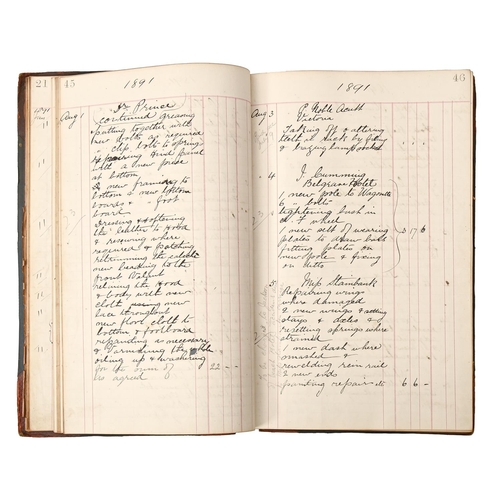 21 45
1891
Aug 1 Mr Prince
continued greasing
putting together with
new bolts as required
" clip bolt to spring
repairing hind panel
with a new piece
at bottom
2 new framing to
bottom 2 new bottom
boards & " foot
board
Dressing & softening
the leather to hood
& resewing where
required & patching
retrimming the
new beading to the
front
relining the hood
& body with new
cloth using new
lace throughout
new floor cloth to
bottom & footboard
repainting as necessary
& varnishing the
oiling up & washering
for the sum of 22 - -
as agreed
46
1891
Aug 3 P Noble Acutt
Victoria
Taking off & altering
bolt
4 J. Cumming
Belgrave Hotel
1 new pole to Wagonette
6 " bolts
tightening bush in
a F wheel
1 new set of wearing
plates to draw bar
fitting plates on
new pole & fixing
on ditto 5 17 6
5 Mrs Stainbank
Repairing wings
where damaged
2 new wings & setting
stays & axles &
resetting springs where
strained
1 new dash where
smashed &
rewelding rein rail
2 new ends
painting repairs etc 6 6 -